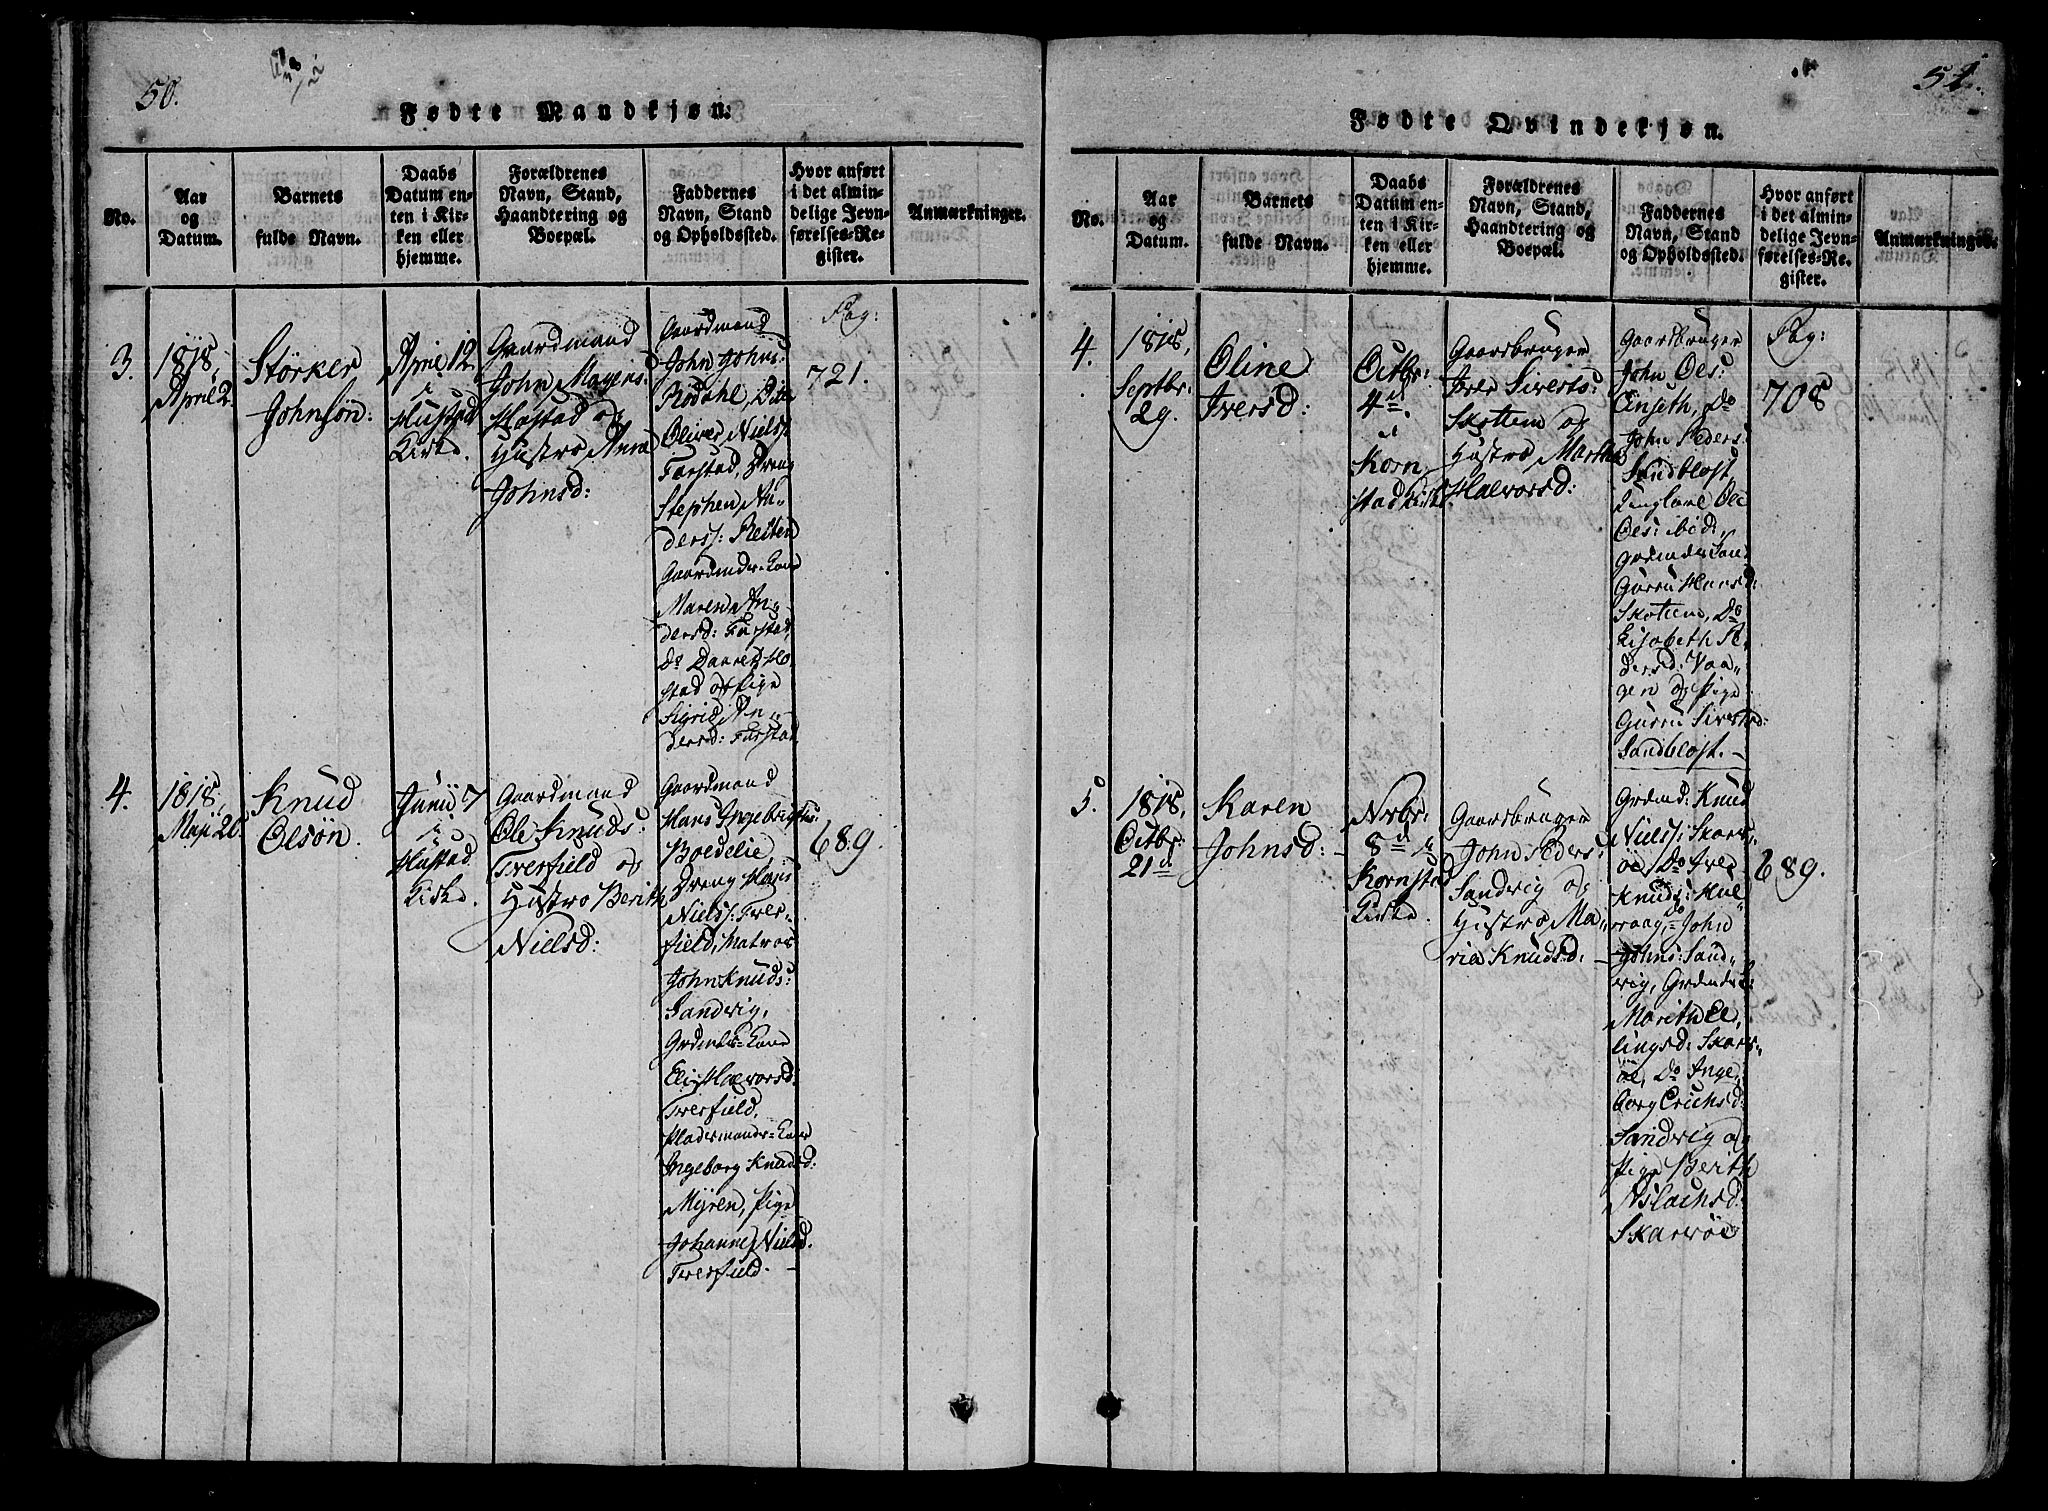 50.
Fødte Mandkjøn.
No.
Aar
og
Datum.
Barnets
fulde Navn.
Daabs
Datum en-
ten i Kir-
ken eller
hjemme.
Forældrenes
Navn, Stand,
Haandtering og
Boepæl.
Faddernes
Navn, Stand
og Opholdssted.
Hvor anført
i det almin-
delige Jevn-
førelses-Re-
gister.
Anmærkninger.
3.
1818,
April 2.
Störker
Johnsön:
April 12
i
Hustad
Kirke.
Gaardmand
John Mogens:
Hostad og
Hustro Anna
Johnsd:
Gaardmand
John Johns:
Rödahl, Dito
Oliver Niels:
Farstad, Dreng
Stephen An-
ders: Reiten
Gaardmds-Kone
Maren An-
dersd: Farstad,
Do Daaret Ho-
stad og Pige
Sigrid An-
dersd: Farstad
Pag:
721.
4.
1818,
Maji 20.
Knud
Olsön.
Junii 7
i
Hustad
Kirke.
Gaardmand
Ole Knuds:
Tverfield og
Hustro Berith
Nielsd:
Gaardmand
Hans Ingebrigts:
Boedelie,
Dreng Hans
Niels: Tver-
field, Matros
John Knuds:
Sandvig,
Grdmds-Kone
Eli Halvorsd:
Tverfield,
Pladsmands-Kone
Ingeborg Knudsd:
Myren, Pige
Johanne Nielsd.
Tverfield.
Pag:
689.
51.
Fødte Qvindekjøn.
No.
Aar
og
Datum.
Barnets
fulde Navn.
Daabs
Datum en-
ten i Kir-
ken eller
hjemme.
Forældrenes
Navn, Stand,
Haandtering og
Boepæl.
Faddernes
Navn, Stand
og Opholdssted.
Hvor anført
i det almin-
delige Jevn-
førelses-Re-
gister.
Anmærkninger.
4.
1818,
Septbr:
29.
Oline
Iversd:
Octbr:
4de
i
Korn
stad Kirke
Gaardbruger
Iver Siverts:
Skottem og
Hustro Martha
Halvorsd:
Gaardbruger
John Oles:
Önseth, Do
John Peders:
Sandblost,
Ungkarl Ole
Oles: ibid:,
Guri Hansd:
Skottem, Do
Lisabeth Pe-
dersd: Vaa-
gen og Pige
Guru Sivertsd:
Sandblost.
Pag:
708
5.
1818,
Octbr:
21de
Karen
Johnsd:
Nvbr:
8de i
Kornstad
Kirke.
Gaardbruger
John Peders:
Sandvig og
Hustro Ma-
ria Knudsd:
Grdmd: Knud
Niels: Skars-
öe, Do Iver
Knuds: Kul-
vaag, Do John
Johns: Sand-
vig,
Marith El-
lingsd: Skars-
öe, Do Inge-
borg Erichsd:
Sandvig og
Pige Berith
Aslachsd:
Skarsöe
689.